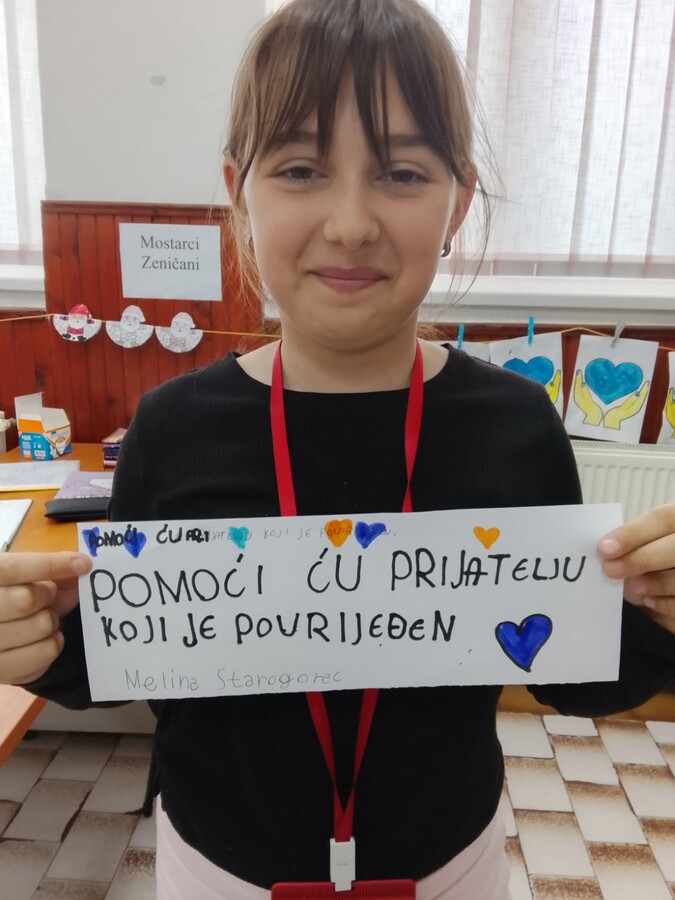 Mostarci
Zeničani
POMOĆI ĆU PRIJATELJU KOJI JE POVRIJEĐEN.
POMOĆI ĆU PRIJATELJU
KOJI JE POVRIJEĐEN
Melina Starogorac